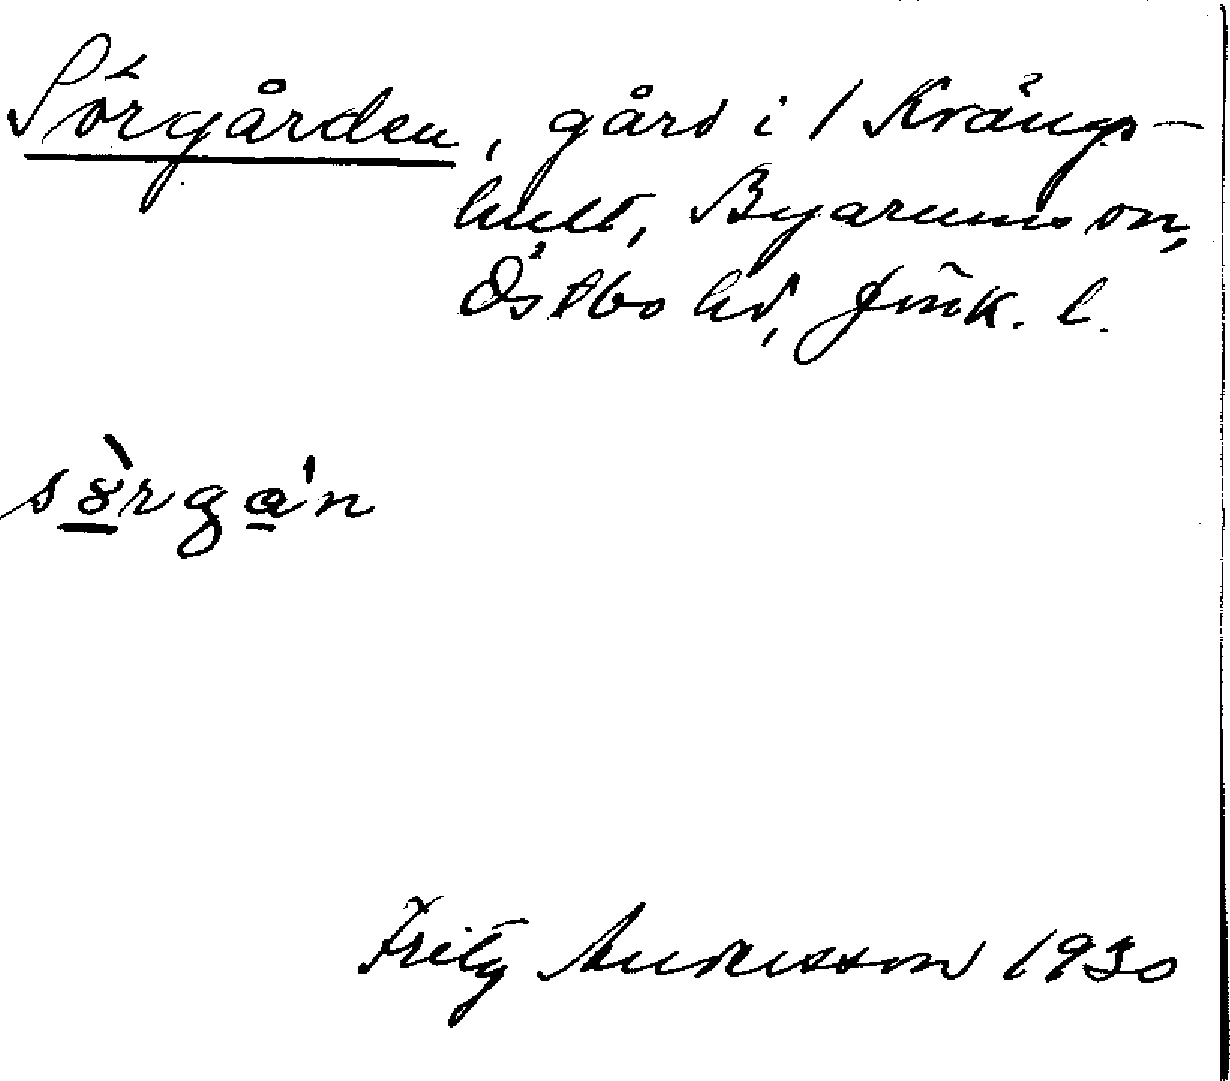 Sörgården, gård i / Krängs-
hult, Byarums sn,
Östbo hd, Jönk. l.
sörgạn
Fritz Andersson 1930